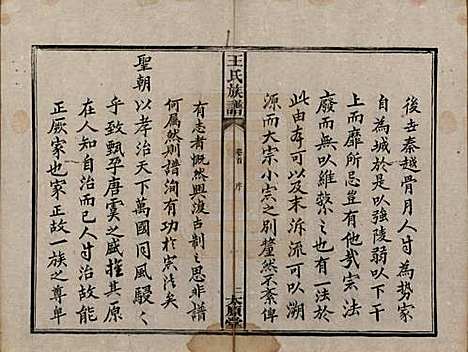 後古秦越骨月人寸為勢家
自為城於是以強陵弱以下干
上而靡所忌豈有他哉宗法
廢而無以維繫之也有一法于
此由夲可以及末泝流可以溯
源而大宗小宗之別釐然不紊俾
王氏族譜
卷首 序
太原堂
有志者慨然興復古制之思非譜
何属然則譜洵有功於宗法矣
聖朝以孝治天下萬國同風駸駸
乎致甄孕唐虞之盛推其原
在人知自治而已人寸治故能
正厥家也家正故一族之尊卑